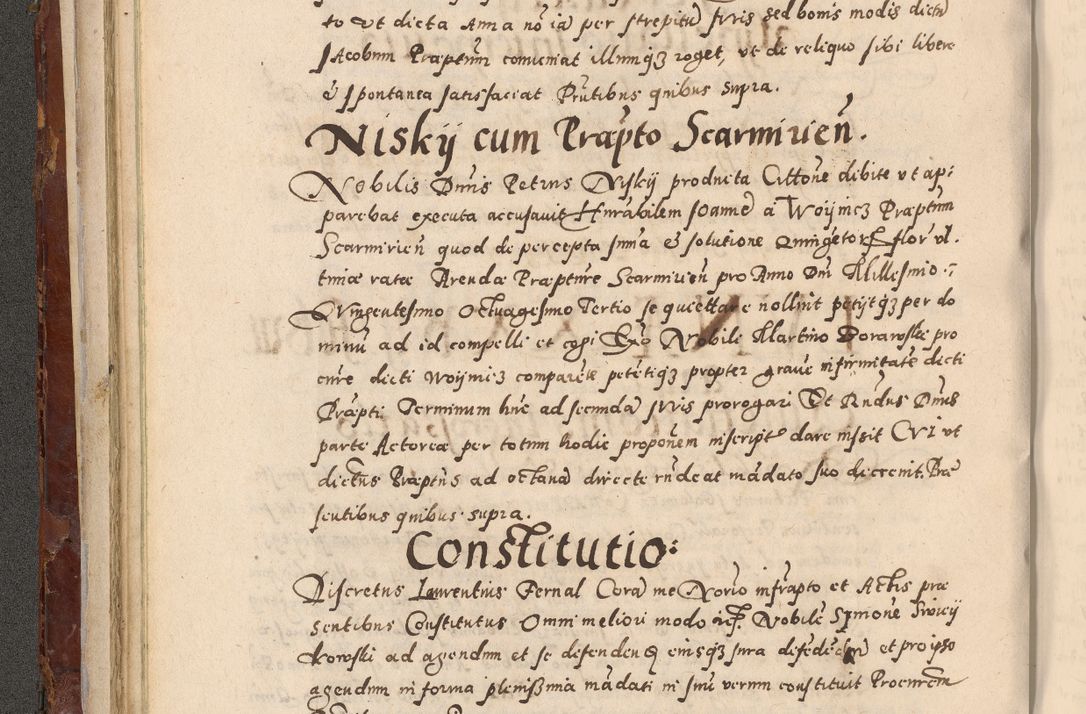 to ut dicta Anna nõ iã per strepitũ Juris sed bonis modis dictũ
Jacobum Præptum conveniat illumq3 roget, ut de reliquo sibi libere
& spontanea satisfaciat Præntibus quibus supra.
Niskij cum Præpto Scarmirień.
Nobilis Dnus Petrus Niskij producta Cittone debite ut ap:
parebat executa accusavit Hnrabilem Joannē a Woynicz Præptum
Scarmirień quod de percepta suma & solutione Quingetor flor ul.
timæ ratæ Arendæ Præpturæ Scarmirień pro Anno Dni Millesimo.:
Quingentesimo Octuagesimo Tertio se quiettare nollint petijtq3 per do
minũ ad id compelli et cogi Ex Nobile Martino Dorawski pro
cure dicti Woynicz comparente petētiq3 propter gravē infirmitatē dicti
Præpti Terminum hũc ad secundã Juris prorogari Et Rndus Dnus
parte Actorea per totum hodie proponem inscriptis dare iussit CVI ut
dictus Præptus ad octavã directe rñdeat mãdato suo decrevit. Præ
sentibus quibus supra.
Constitutio:
Discretus Laurentius Fernal Corã me Norio infrapto et Actis præ
sentibus Constitutus Omni meliori modo Nobilē Simonē
kowski ad agendum et se defendend eiusq3 iura et pro ipso
agendum in forma plenissima mãdati in sui verum constituit Procurem